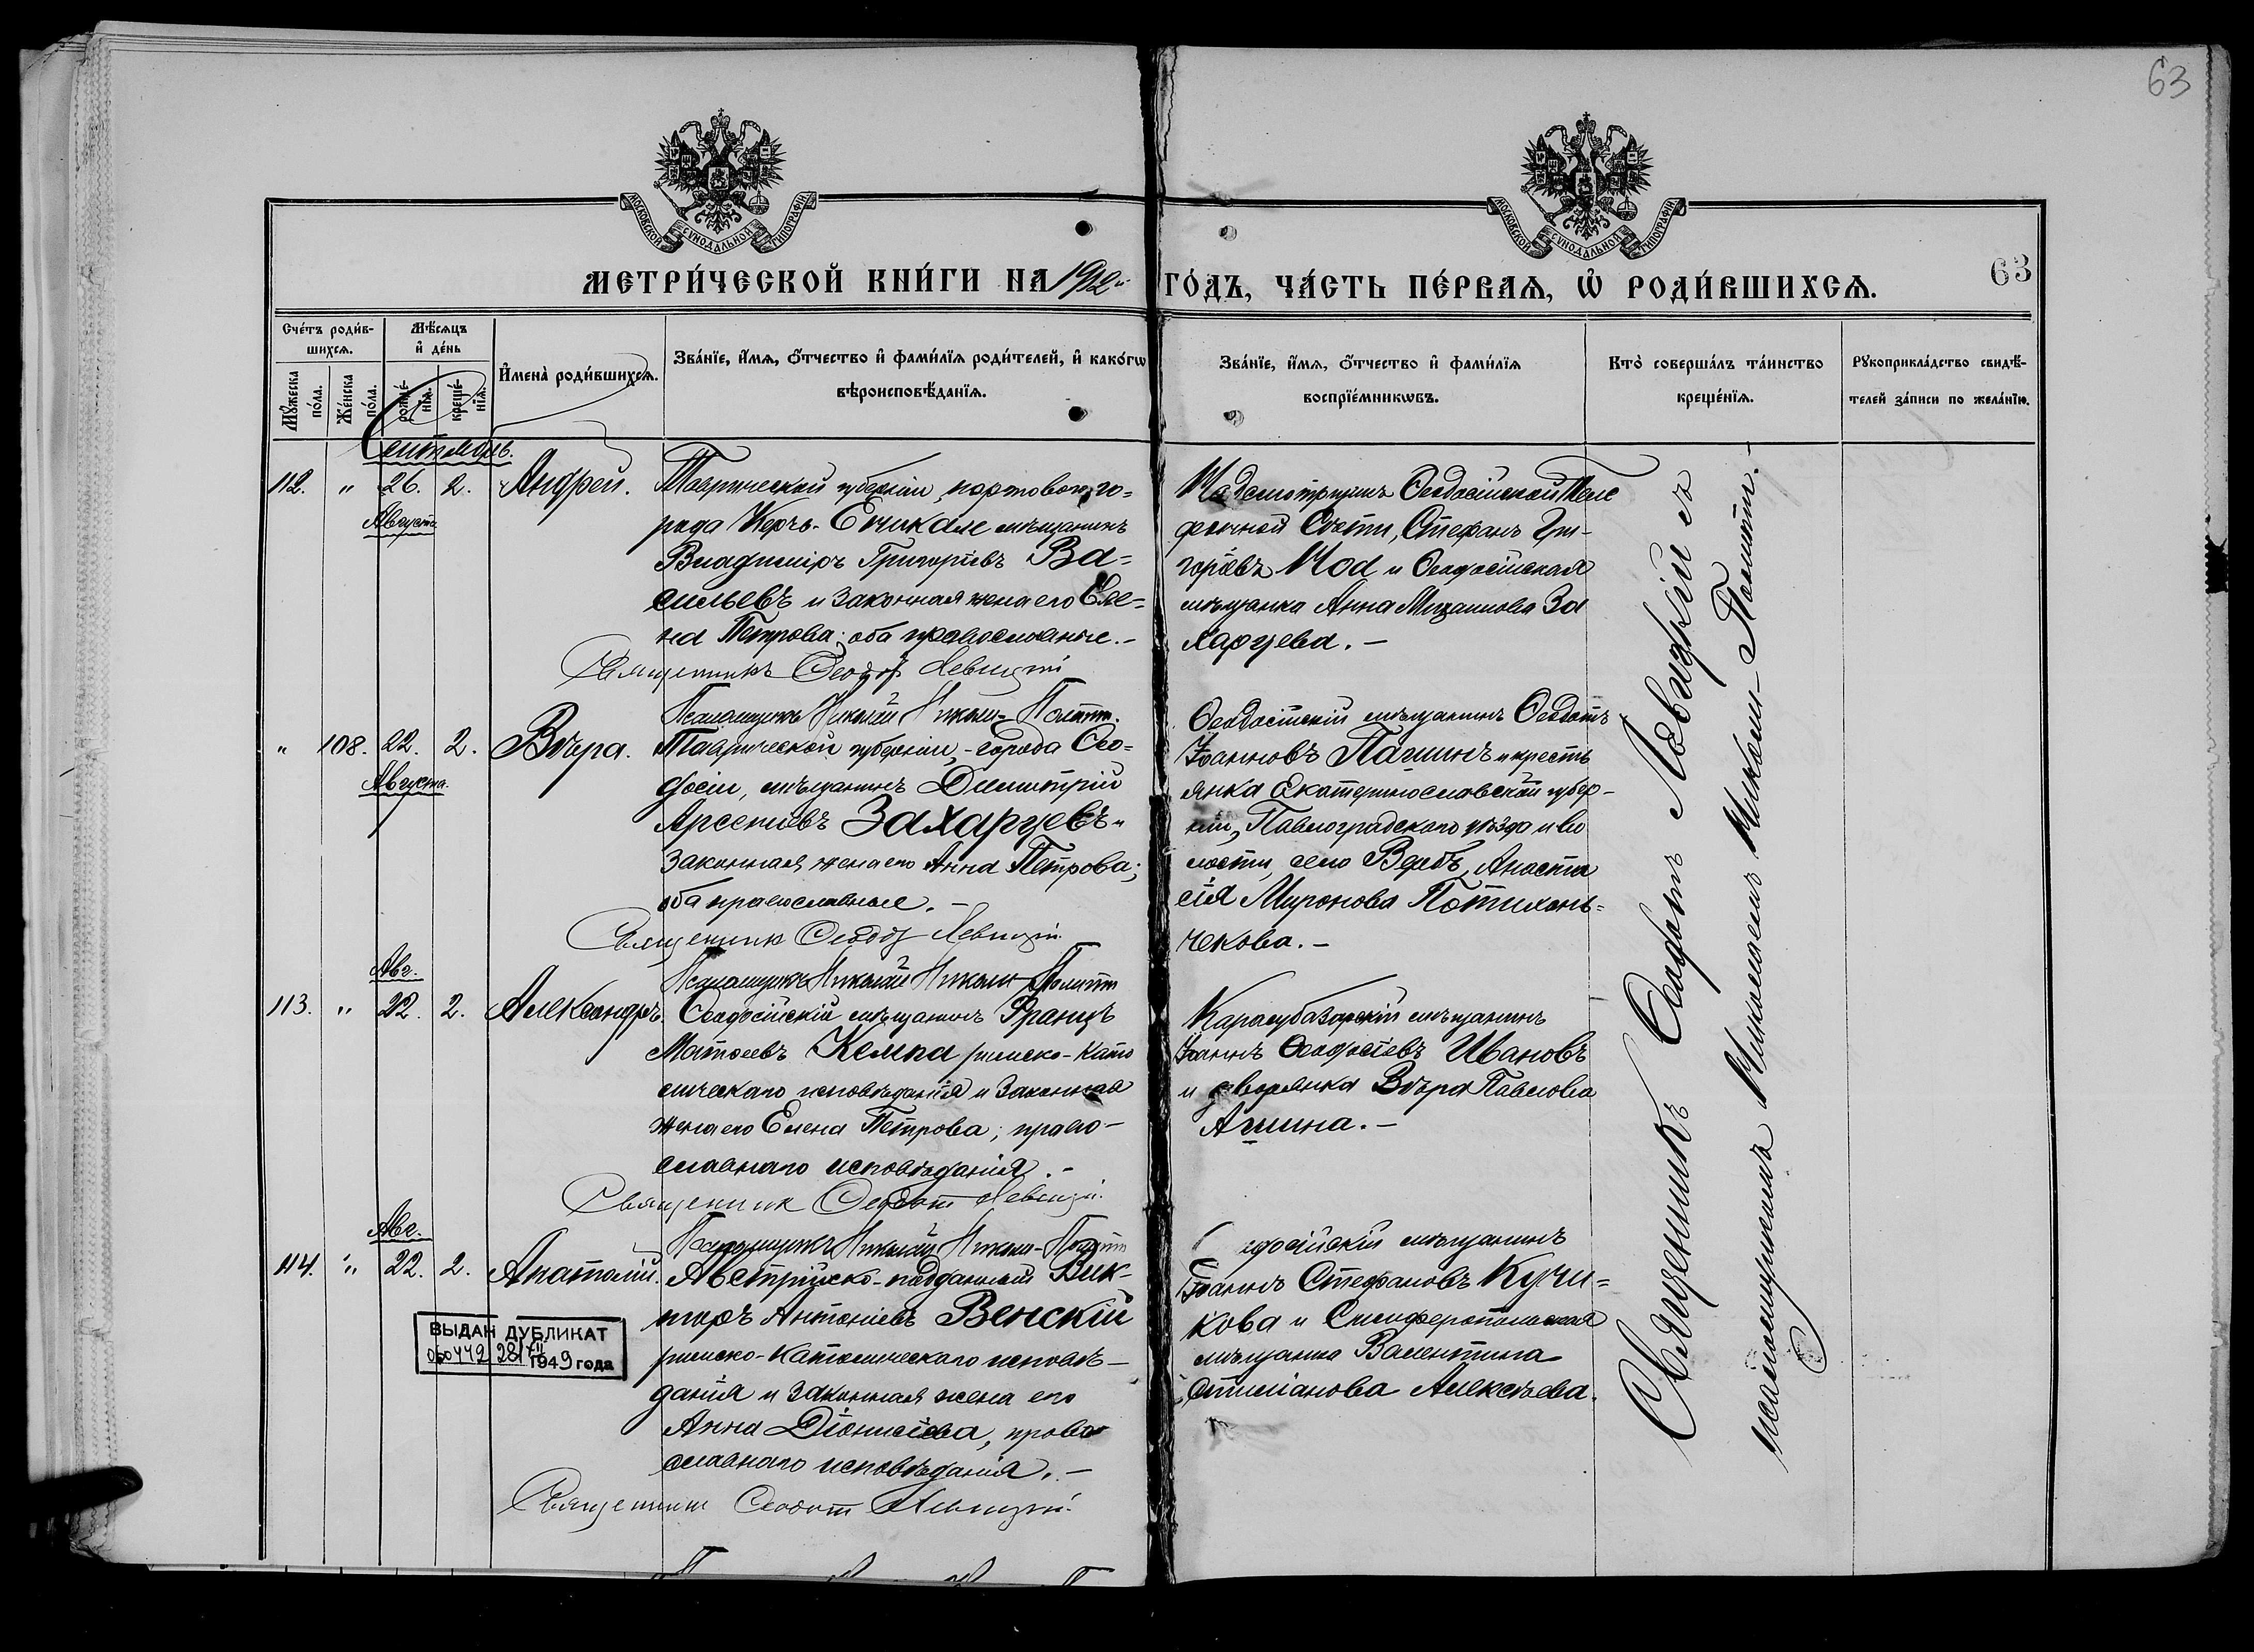 63
МОСКОВСКОЙ СѴНОДАЛЬНОЙ ТИПОГРАФІИ
МОСКОВСКОЙ СѴНОДАЛЬНОЙ ТИПОГРАФІИ
МЕТРИ́ЧЕСКОЙ КНИ́ГИ НА 1912й ГО́ДЪ, ЧА́СТЬ ПЕ́РВАѦ, Ѡ҆ РОДИ́ВШИХСѦ.
63
Сче́тъ роди́в-
шихсѧ.
Мꙋ́жеска
по́ла.
Же́нска
по́ла.
Мѣ́сѧцъ
и҆ де́нь
рожде́-
нїѧ.
креще́-
нїѧ.
И҆мена̀ роди́вшихсѧ.
Зва́нїе, и҆́мѧ, ѻ҆́тчество и҆ фами́лїѧ роди́телей, и҆ како́гѡ
вѣроисповѣ́данїѧ.
Зва́нїе, и҆́мѧ, ѻ҆́тчество и҆ фами́лїѧ
воспрїе́мникѡвъ.
Кто̀ соверша́лъ та́инство
креще́нїѧ.
Рꙋкоприкла́дство свидѣ́-
телей за́писи по жела́нїю.
Сентябрь.
112. " 26. 2. Андрей.
Августа
Таврической губерніи, портоваго го-
рода Керчь-Еникале мѣщанинъ
Владиміръ Григорьевъ Ва-
сильевъ и законная жена его Еле-
на Петрова; оба православные.-
Священникъ Ѳеодот Левицкій
Псаломщикъ Николай Николи-Полатти.
Надсмотрщикъ Ѳеодосійской Теле
фонной Сѣти, Стефанъ Гри-
горьевъ Мод и Ѳеодосійская
мѣщанка Анна За
харцева.-
" 108. 22. 2. Вѣра.
Августа.
Таврической губерніи, города Ѳео-
досіи, мѣщанинъ Димитрій
Арсеніевъ Захарцевъ и
законная жена его Анна Петрова;
оба православные.-
Священник Ѳеодот Левицкій.
Псаломщикъ Николай Николи-Полатти
Ѳеодосійскій мѣщанинъ Ѳеодотъ
Іоанновъ Пашинъ и кресть
янка Екатеринославской губер-
ніи, Павлоградскаго уѣзда и во
лости, село Вербъ, Анаста
сія Миронова Потихонь-
чекова.-
Авг.
113. " 22. 2. Александръ.
Ѳеодосійскій мѣщанинъ Францъ
Матѳеевъ Кемпа римско-като
лическаго исповѣданія и законная
жена его Елена Петрова; право-
славнаго исповѣданія.-
Священник Ѳеодот Левицкій.
Псаломщикъ Николай Николи-Полатти
Карасубазарскій мѣщанинъ
Іоаннъ Ѳеодосіевъ Ивановъ
и дворянка Вѣра Павлова
Ашина.-
Авг.
114. " 22. 2. Анатолій.
Австрійско-подданный Вик-
торъ Антоніевъ Венскій
римско-католическаго исповѣ-
данія и законная жена его
Анна Діонисіева, право
славнаго исповѣданія.-
Священник Ѳеодот Левицкій.
одосійскій мѣщанинъ
Іоаннъ Стефановъ Кучи-
кова и Симферопольская
мѣщанка Валентина
Алексѣева.
ВЫДАН ДУБЛИКАТ
28/VII 1949 года
Священникъ Ѳеодотъ Левицкій съ
псаломщикомъ Николаемъ Николи-Полатти.-